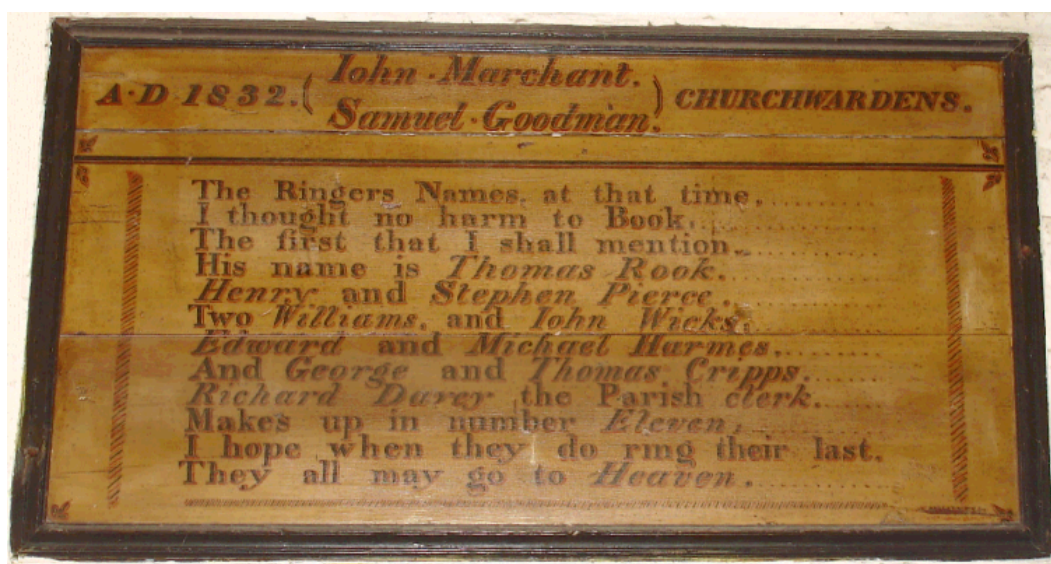 Iohn · Marchant.
A · D 1832. ( ) CHURCHWARDENS.
Samuel · Goodman.
The Ringers Names, at that time,
I thought no harm to Book.
The first that I shall mention
His name is Thomas Rook.
Henry and Stephen Pierce,
Two Williams, and Iohn Wicks,
Edward and Michael Harmes,
And George and Thomas Cripps,
Richard Davey the Parish clerk
Makes up in number Eleven,
I hope when they do ring their last,
They all may go to Heaven.